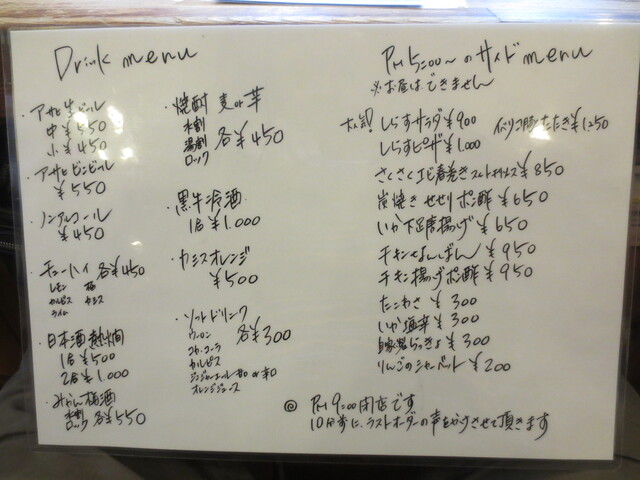 Drink menu
・アサヒ生ビール
中 ¥550
小 ¥450
・アサヒビンビール
¥550
・ノンアルコール
¥450
・チューハイ 各¥450
レモン 梅
カルピス カシス
ライム
・日本酒 熱燗
1合 ¥500
2合 ¥1.000
・みかん梅酒
水割
ロック 各¥550
・焼酎 麦or芋
水割
湯割 各¥450
ロック
・黒牛冷酒
1合 ¥1.000
・カシスオレンジ
¥500
・ソフトドリンク
ウーロン 各¥300
コカ・コーラ
カルピス
ジンジャーエール 甘 or 辛
オレンジジュース
PM 5:00〜のサイドmenu
※お昼はできません
大人気! しらすサラダ ¥900
イベリコ豚たたき ¥1250
しらすピザ ¥1.000
さくさくエビ春巻き ¥850
炭焼き せせりポン酢 ¥650
いか下足唐揚げ ¥650
チキンなんばん ¥950
チキン揚げポン酢 ¥950
たこわさ ¥300
いか塩辛 ¥300
自家製らっきょ ¥300
りんごのシャーベット ¥200
◎ PM 9:00閉店です
10分前に、ラストオーダーの声をかけさせて頂きます